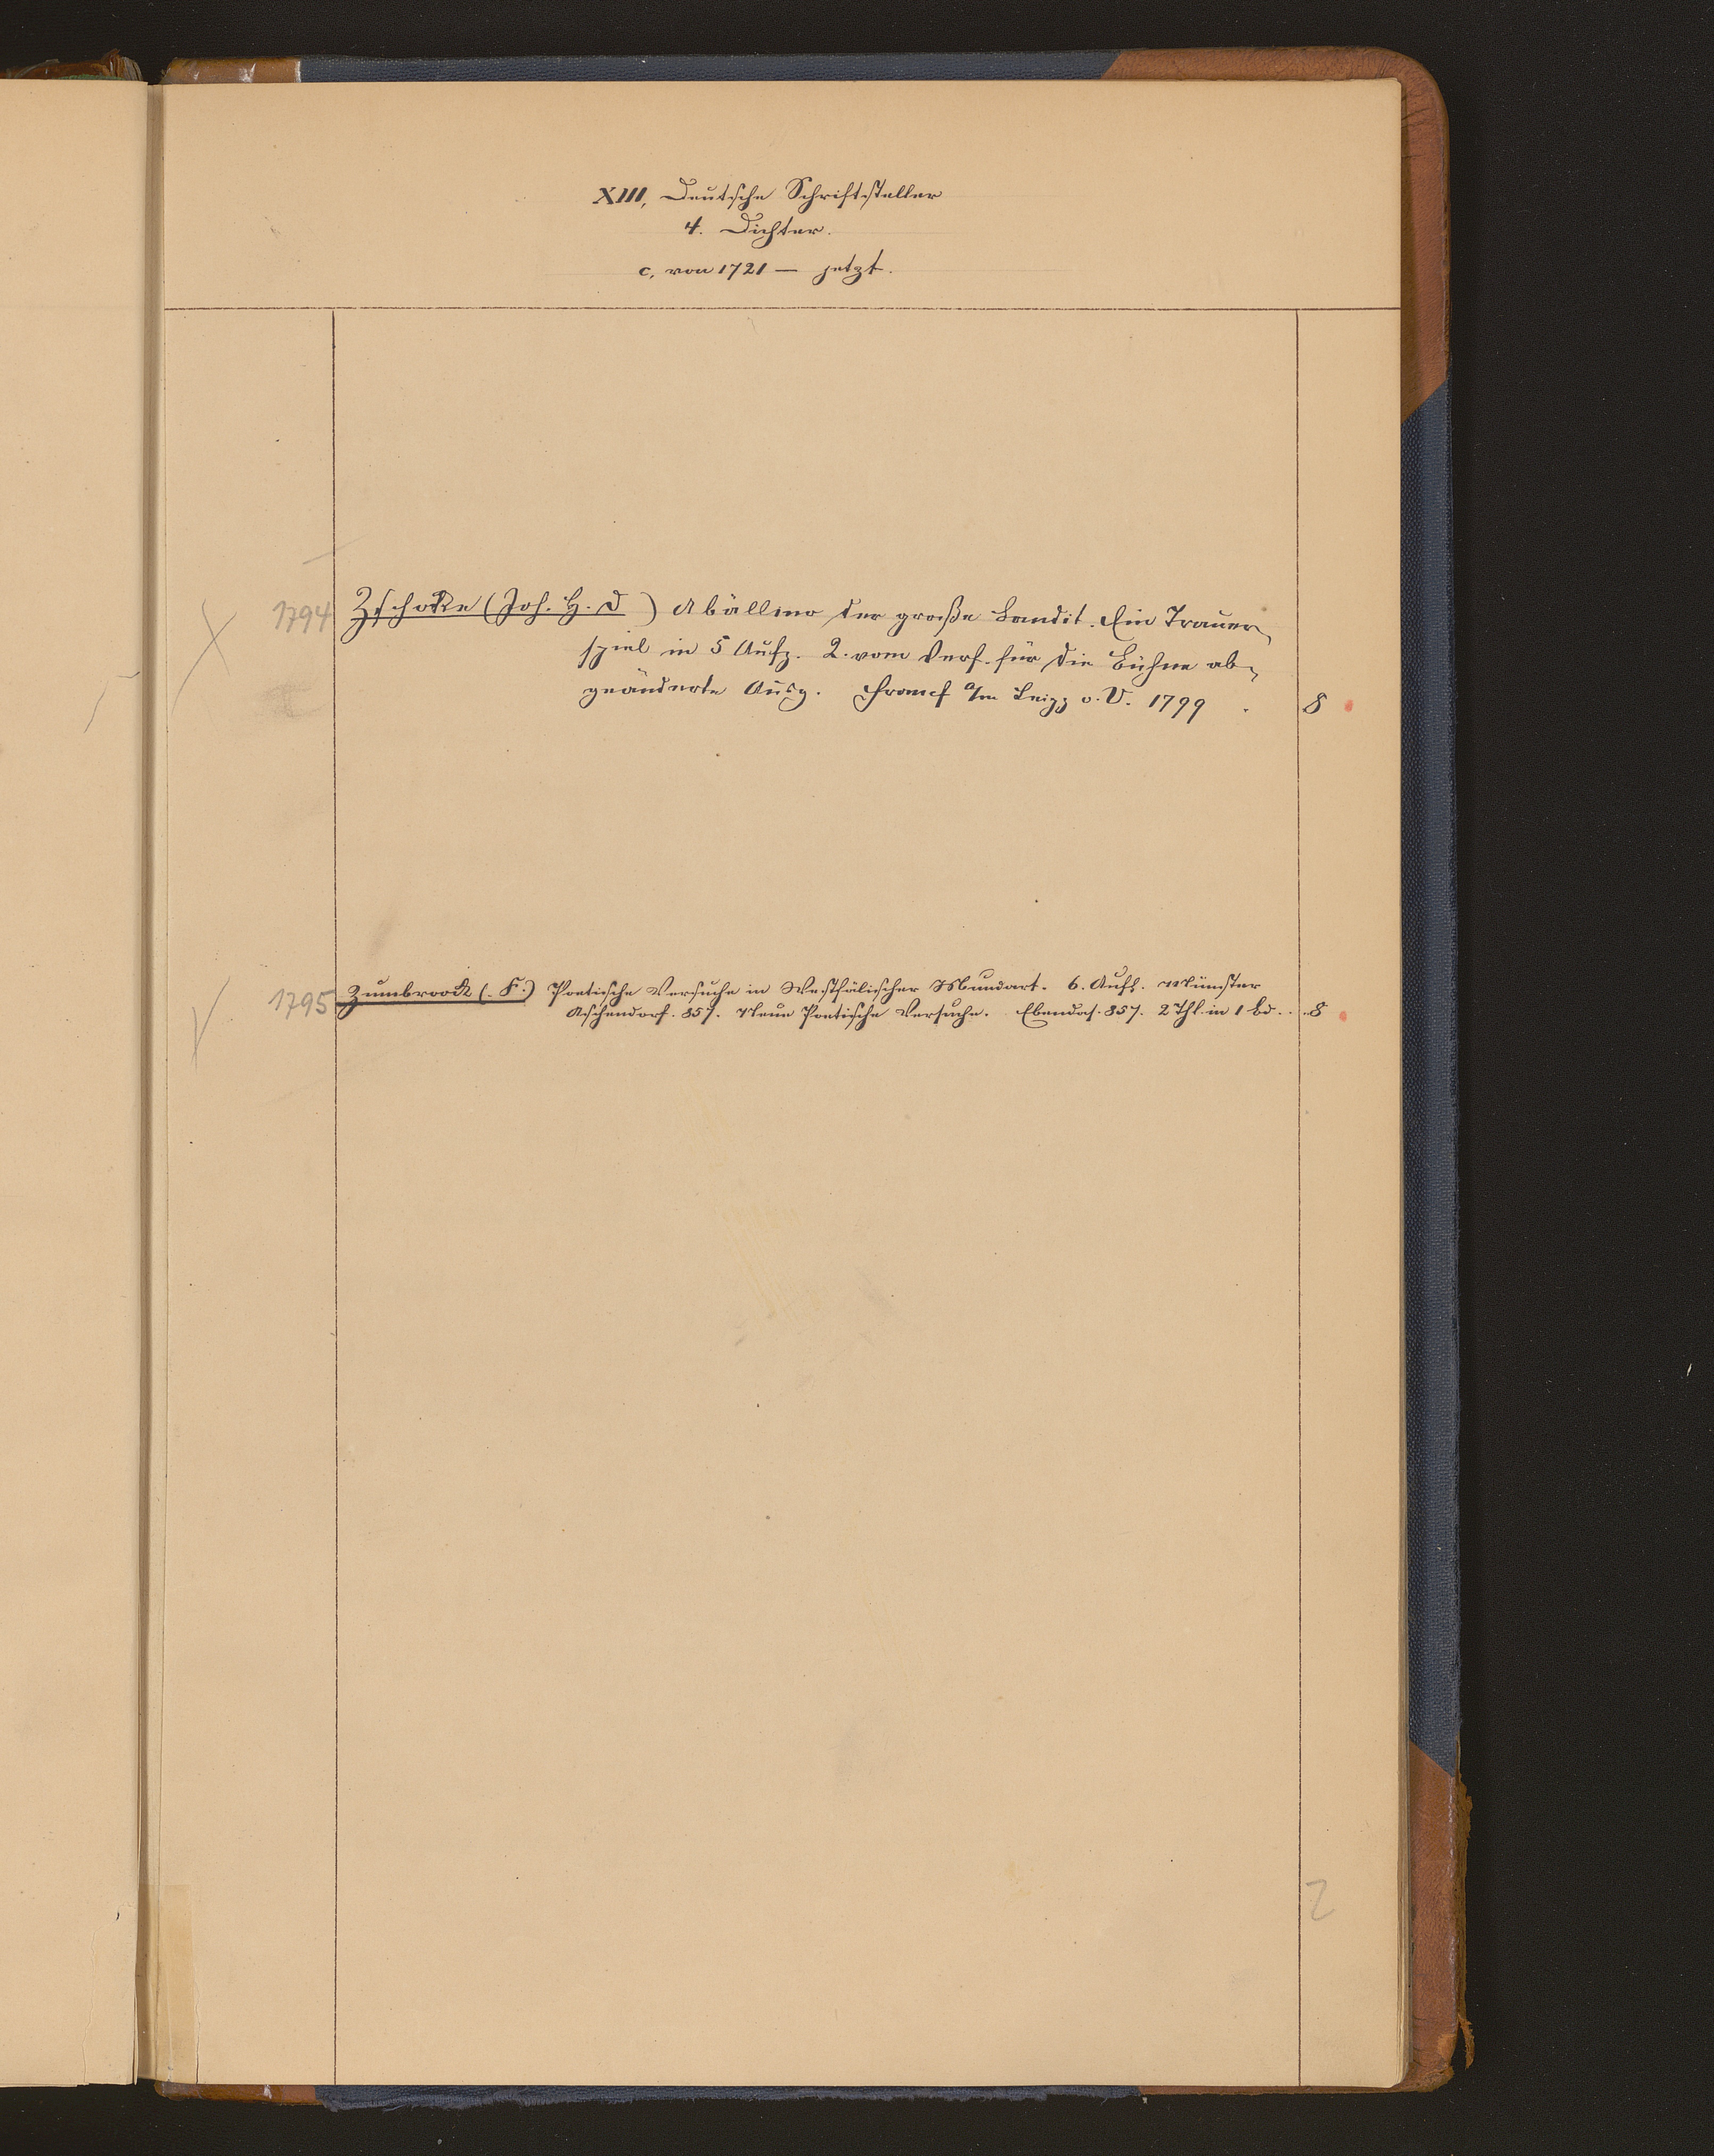 XIII, Deutsche Schriftsteller
4. Dichter.
c, von 1721 — jetzt.
1794 Zschokke (Joh. H. D ) Abällino der große Bandit. Ein Trauer-
spiel in 5 Aufz. 2. vom Verf. für die Bühne ab-
geänderte Ausg. Francf a/m Leipz o. V. 1799 . 8
1795 Zumbroock (. F.) Poetische Versuche in Westfälischer Mundart. 6. Aufl. Münster
Aschendorf. 857. Neue Poetische Versuche. Ebendas. 857. 2 Thl. in 1 Bd. . . 8
2